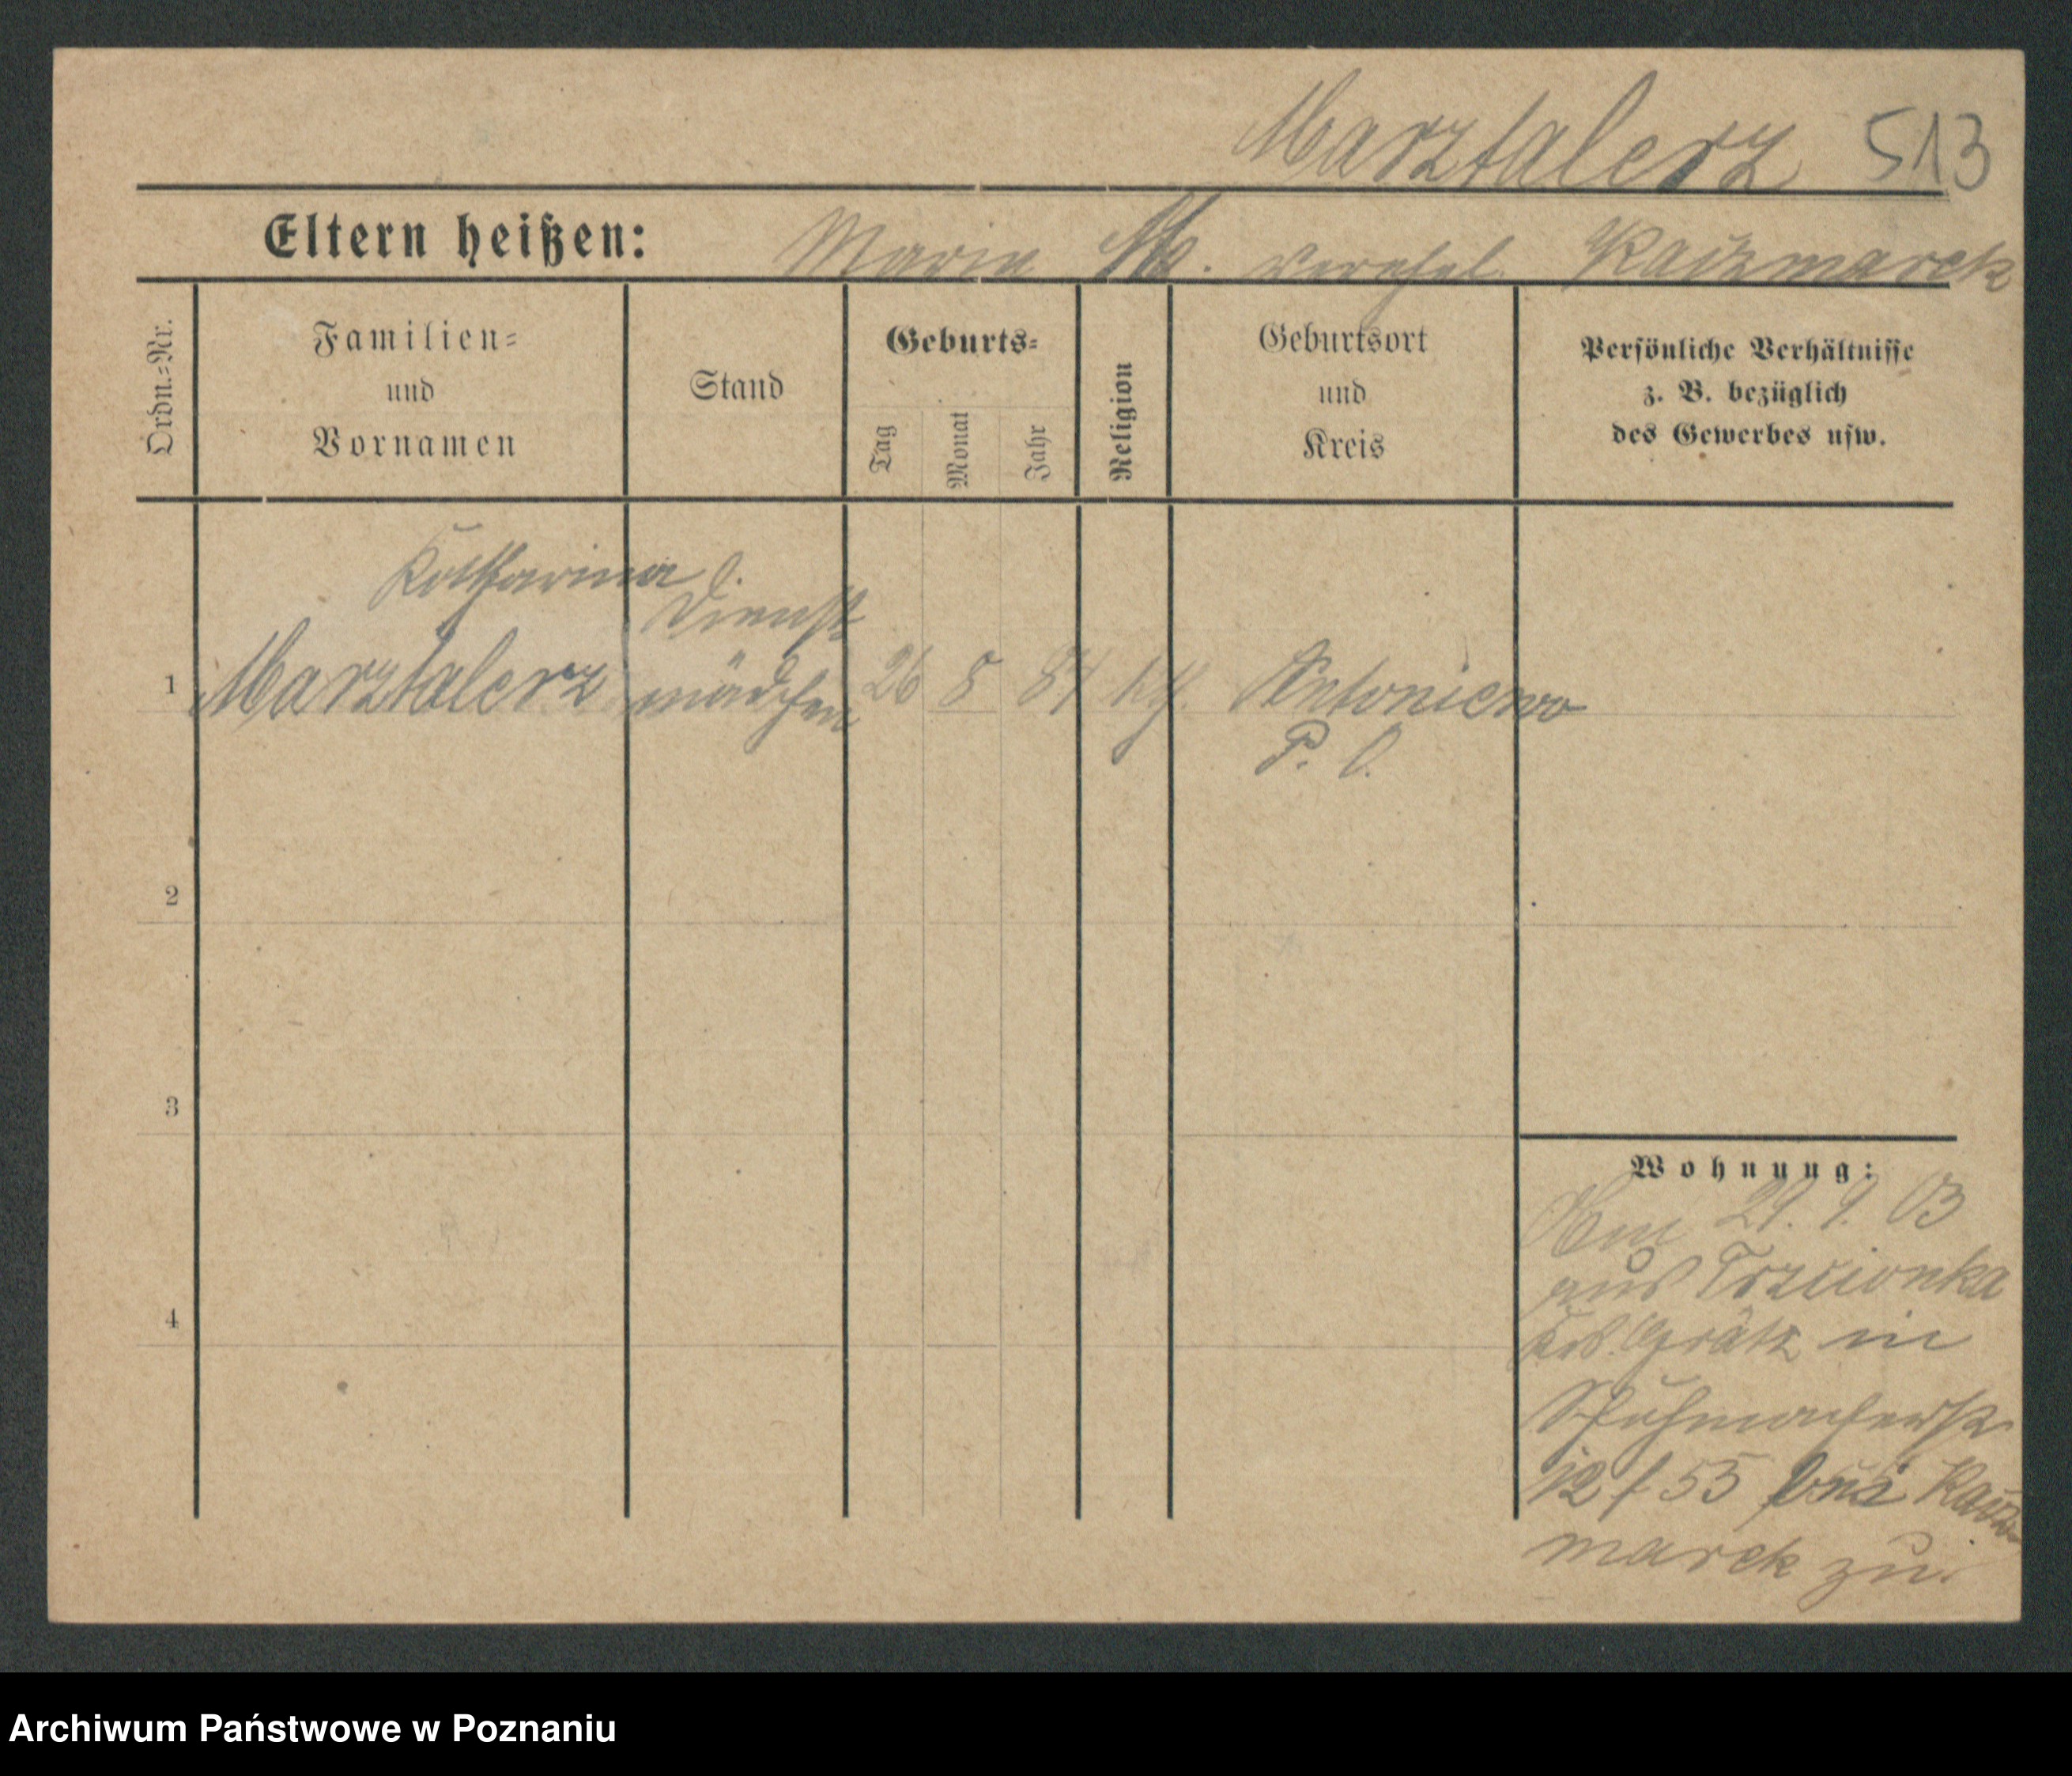 Marztalerz 513
Eltern heißen: Maria M. verehel. Kaczmarek
Ordn.-Nr.
Familien-
und
Vornamen
Stand
Geburts-
Tag
Monat
Jahr
Religion
Geburtsort
und
Kreis
Persönliche Verhältnisse
z. B. bezüglich
des Gewerbes usw.
Katharina
Dienst
1 Marztalerz mädchen 26 8 84 kth. Antoniewo
P. O.
2
3
4
Wohnung:
29. 9. 03
aus Trzcionka
Grätz in
Schuhmacherstr
12 f 55 bei Kacz
marek zu.
Archiwum Państwowe w Poznaniu